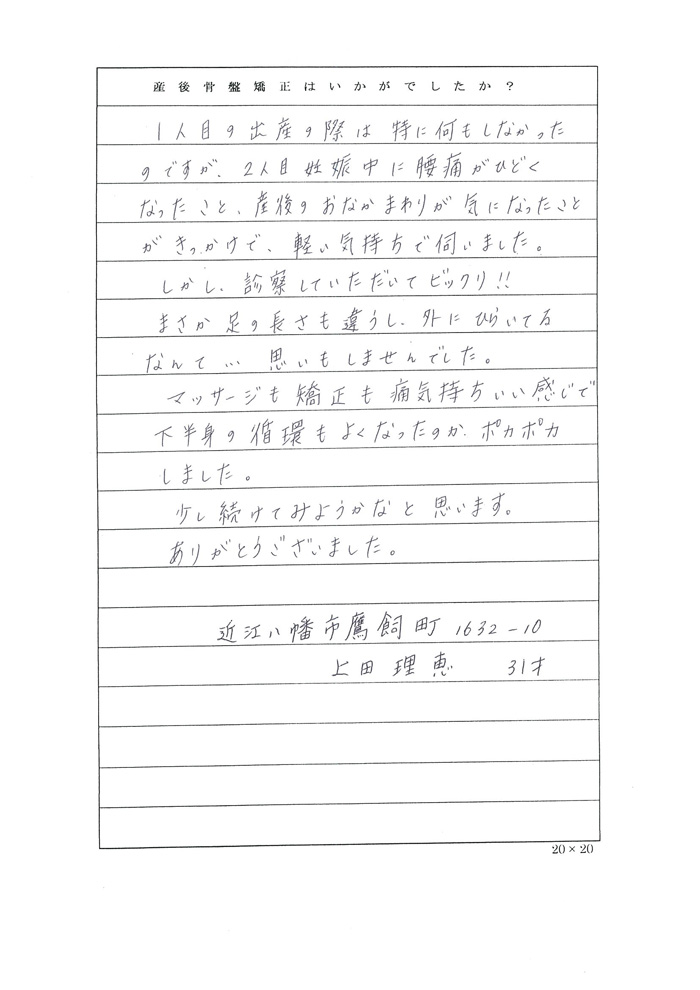 産後骨盤矯正はいかがでしたか？
1人目の出産の際は特に何もしなかった
のですが、2人目妊娠中に腰痛がひどく
なったこと、産後のおなかまわりが気になったこと
がきっかけで、軽い気持ちで伺いました。
しかし、診察していただいてビックリ!!
まさか足の長さも違うし、外にひらいてる
なんて… 思いもしませんでした。
マッサージも矯正も痛気持ちいい感じで
下半身の循環もよくなったのか、ポカポカ
しました。
少し続けてみようかなと思います。
ありがとうございました。
近江八幡市鷹飼町1632-10
上田理恵 31才
20×20